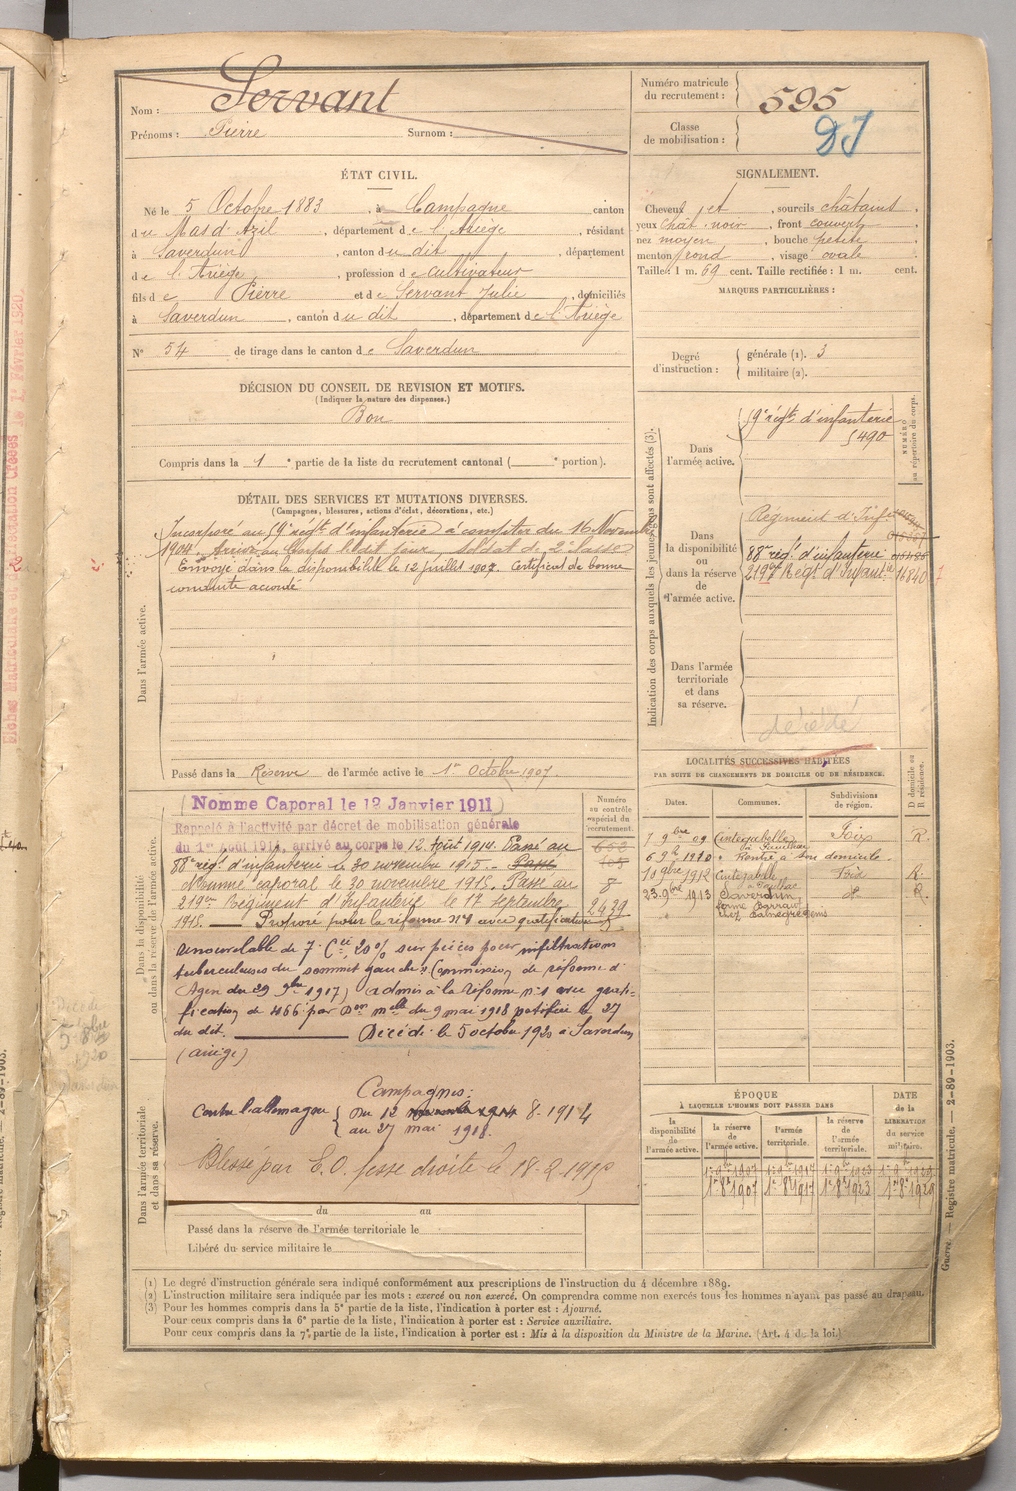 Nom : Servant
Prénoms : Pierre Surnom :
Numéro matricule du recrutement : 595
Classe de mobilisation :
ÉTAT CIVIL.
Né le 5 Octobre 1883, à Campagne canton
du Mas d'Azil, département de l'Ariège, résidant
à Saverdun, canton du dit, département
de l'Ariège, profession de cultivateur
fils de Pierre et de Servant Julie, domiciliés
à Saverdun, canton du dit, département de l'Ariège
N° 54 de tirage dans le canton de Saverdun
SIGNALEMENT.
Cheveux et, sourcils châtains.
yeux chat. noir, front couvert,
nez moyen, bouche petite,
menton rond, visage ovale
Taille : 1 m. 69 cent. Taille rectifiée : 1 m. cent.
MARQUES PARTICULIÈRES :
Degré d'instruction : générale (1). 3
militaire (2).
DÉCISION DU CONSEIL DE REVISION ET MOTIFS.
(Indiquer la nature des dispenses.)
Bon
Compris dans la 1e partie de la liste du recrutement cantonal ( e portion).
DÉTAIL DES SERVICES ET MUTATIONS DIVERSES.
(Campagnes, blessures, actions d'éclat, décorations, etc.)
Dans l'armée active.
Incorporé au 9e régt d'infanterie à compter du 16 Novembre
1904. Arrivé au Corps le dit jour, soldat de 2e classe
Envoyé dans la disponibilité le 12 juillet 1907. Certificat de bonne
conduite accordé
Passé dans la Réserve de l'armée active le 1er Octobre 1907.
Indication des corps auxquels les jeunes gens sont affectés (3).
NUMÉRO au répertoire du corps.
Dans l'armée active.
9e régt d'infanterie
490
Dans la disponibilité ou dans la réserve de l'armée active.
Régiment d'Inf.
88me rég. d'infanterie
219me Régt d'Infant.ie 16840
Dans l'armée territoriale et dans sa réserve.
décédé
Dans la disponibilité ou dans la réserve de l'armée active.
Numéro au contrôle spécial du recrutement.
Nommé Caporal le 12 Janvier 1911
Rappelé à l'activité par décret de mobilisation générale
du 1er Août 1914, arrivé au corps le 12 Août 1914. Passé au
88me rég. d'infanterie le 30 novembre 1915. Passé
Nommé caporal le 30 novembre 1915. Passé au
219me Régiment d'Infanterie le 17 septembre
1915. Proposé pour la réforme n°1 avec gratification
2439
renouvelable de 7e Cie 20% sur pièces pour infiltrations
tuberculeuses du sommet gauche". (Commission de réforme d'
Agen du 29 9bre 1917) admis à la réforme n°1 avec grati-
fication de 466 par Don melle du 9 mai 1918 notifiée le 27
du dit. Décédé le 5 octobre 1920 à Saverdun
(Ariège)
Campagnes :
Contre l'allemagne { Du 12 8-1914
au 27 mai 1918.
Blessé par E. O. fesse droite le 18-2-1915
LOCALITÉS SUCCESSIVES HABITÉES
PAR SUITE DE CHANGEMENTS DE DOMICILE OU DE RÉSIDENCE.
Dates. Communes. Subdivisions de région. D domicile ou R résidence.
7 9bre 09 Cintegabelle Foix R.
6 9bre 1910 Rentré à son domicile.
10 9bre 1912 Cintegabelle Foix R.
23 9bre 1913 Saverdun d° R.
ÉPOQUE
À LAQUELLE L'HOMME DOIT PASSER DANS
la disponibilité de l'armée active. la réserve de l'armée active. l'armée territoriale. la réserve de l'armée territoriale.
DATE de la LIBÉRATION du service militaire.
1er 8bre 1907 1er 8bre 1917 1er 8bre 1923 1er 8bre 1929
Dans l'armée territoriale et dans sa réserve.
du au
Passé dans la réserve de l'armée territoriale le
Libéré du service militaire le
(1) Le degré d'instruction générale sera indiqué conformément aux prescriptions de l'instruction du 4 décembre 1889.
(2) L'instruction militaire sera indiquée par les mots : exercé ou non exercé. On comprendra comme non exercés tous les hommes n'ayant pas passé au drapeau.
(3) Pour les hommes compris dans la 5e partie de la liste, l'indication à porter est : Ajourné.
Pour ceux compris dans la 6e partie de la liste, l'indication à porter est : Service auxiliaire.
Pour ceux compris dans la 7e partie de la liste, l'indication à porter est : Mis à la disposition du Ministre de la Marine. (Art. 4 de la loi.)
Guerre. — Registre matricule. — 2-89-1903.
5-8bre
1920